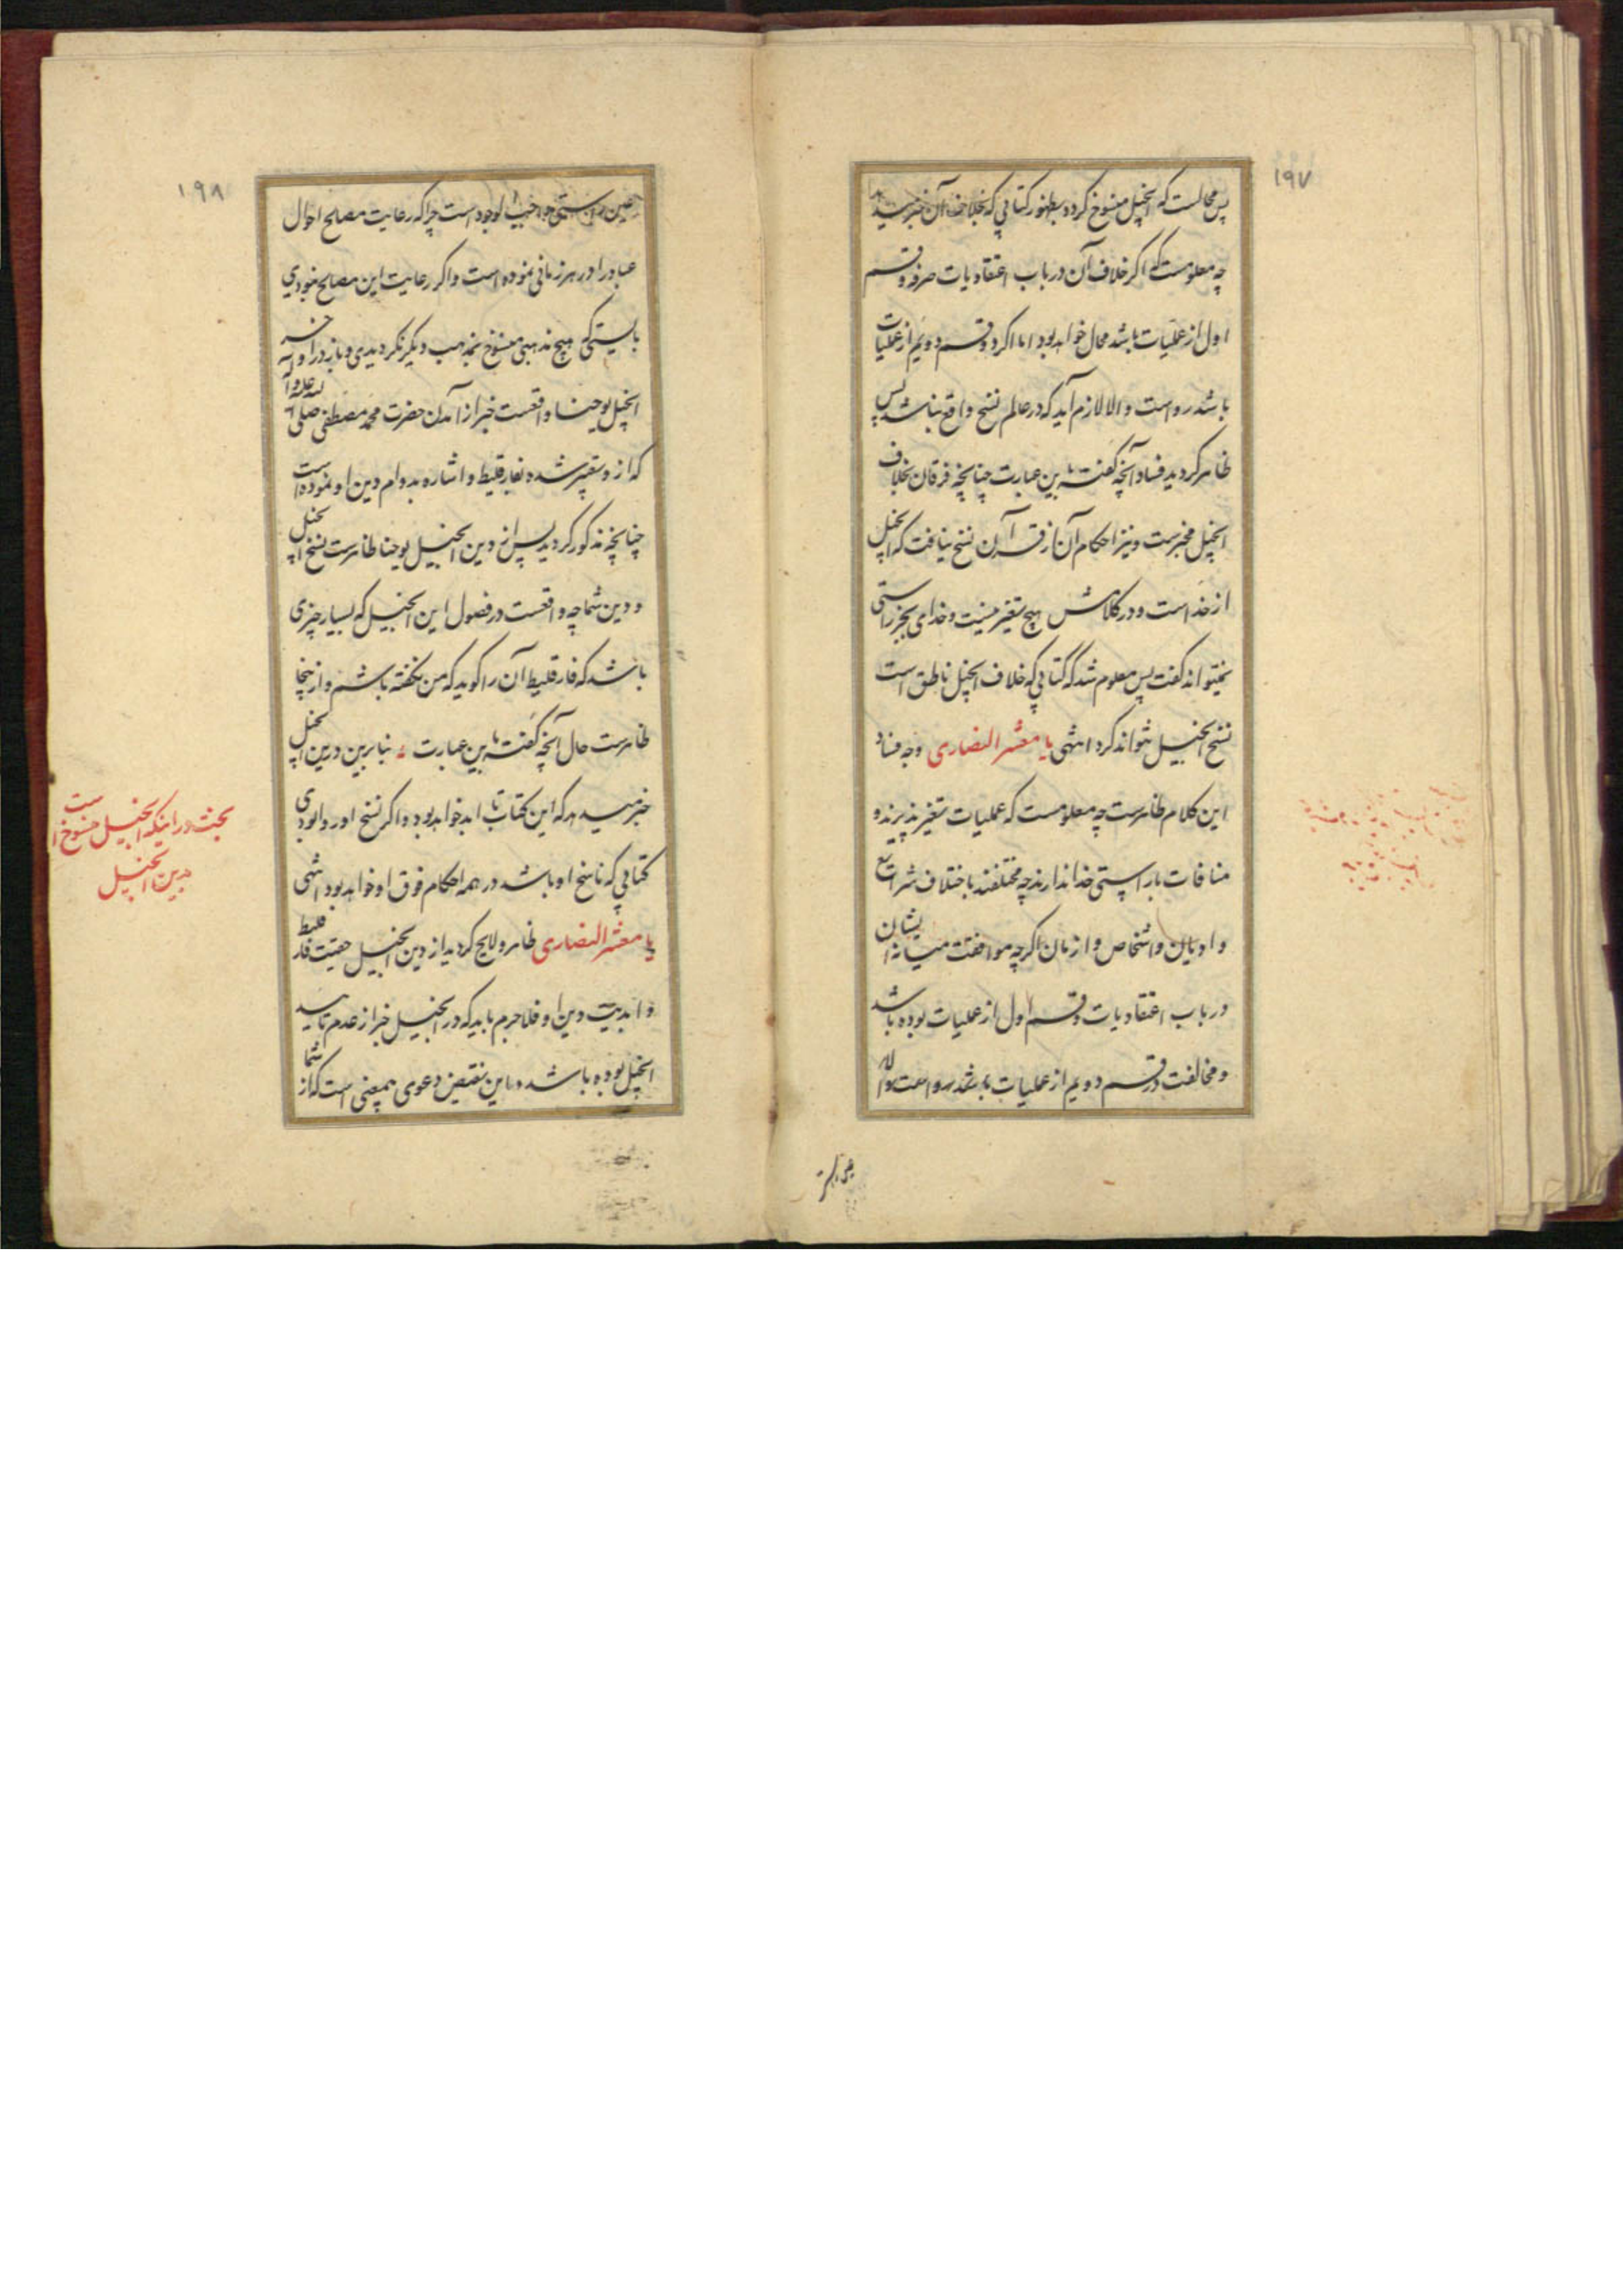 ۱۹۷
پس محالست که انجیل منسوخ کردد بظهور کتابی که بخلاف آن خبر میدهد
چه معلومست که اکر خلاف آن در باب اعتقادیات صرفه و قسم
اول از عملیات باشد محال خواهد بود اما اکر در قسم دویم از عملیات
باشد رواست والا لازم آید که در عالم نسخ واقع نباشد پس
ظاهر کردید فساد آنچه کفته باین عبارت چنانچه فرقان بخلاف
انجیل مخبرست و نیز احکام آن از قرآن نسخ نیافت که انجیل
از خداست و در کلامش هیچ تغیر نیست و خدای بجز راستی
نمیتواند کفت پس معلوم شد که کتابی که خلاف انجیل ناطق است
نسخ انجیل نتواند کرد انتهی یا معشر النصاری وجه فساد
این کلام ظاهرست چه معلومست که عملیات تغیر پذیرند و
منافات با راستی خدا ندارند چه مختلفند باختلاف شرائع
و ادیان و اشخاص و ازمان اکرچه موافقت میانه ایشان
در باب اعتقادیات و قسم اول از عملیات بوده باشد
و مخالفت در قسم دویم از عملیات باشد رواست
۱۹۸
عین راستی واجب الوجود است چرا که رعایت مصالح احوال
عباد را در هر زمانی نموده است و اکر رعایت این مصالح نبودی
بایستی که هیچ مذهبی منسوخ بمذهب دیکر نکردیدی و باز در اواخر
انجیل یوحنا واقعست خبر از آمدن حضرت محمد مصطفی صلی الله علیه و آله
که از و تعبیر شده بفارقلیط و اشاره بدوام دین او نموده است
چنانچه مذکور کردید پس از دین انجیل یوحنا ظاهرست نسخ انجیل
و دین شما چه واقعست در فصول این انجیل که بسیار چیزی
باشد که فارقلیط آن را کوید که من نکفته باشم و از ینجا
ظاهرست حال آنچه کفته باین عبارت بنابرین درین انجیل
خبر میدهد که این کتاب تا ابد خواهد بود و اکر نسخ او روا بودی
کتابی که ناسخ او باشد در همه احکام فوق او خواهد بود انتهی
یا معشر النصاری ظاهر و لایح کردید از دین انجیل حقیت فارقلیط
و ابدیت دین او فلاجرم باید که در انجیل خبر از عدم تابید
انجیل بوده باشد و این نقیض دعوی بیمعنی است که از شما
بحث در اینکه انجیل منسوخ است
بدین انجیل